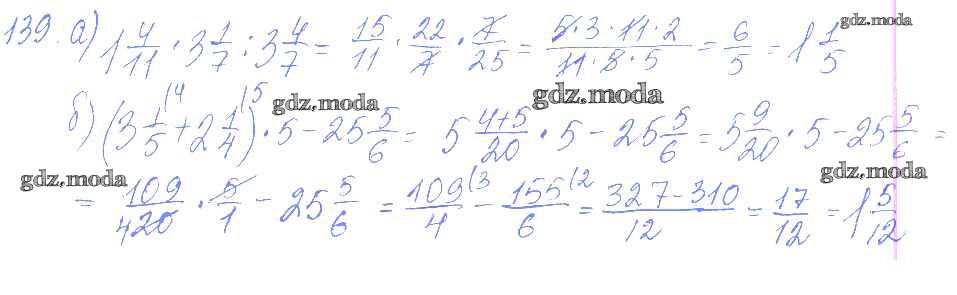 139. а) 1 4/11 · 3 1/7 : 3 4/7 = 15/11 · 22/7 · 7/25 = 5·3·11·2/11·5·5 = 6/5 = 1 1/5
gdz.moda
б) (3 1/5 (4 + 2 1/4 (5) · 5 - 25 5/6 = 5 4+5/20 · 5 - 25 5/6 = 5 9/20 · 5 - 25 5/6 =
gdz.moda
gdz.moda
= 109/420 · 5/1 - 25 5/6 = 109/4 (3 - 155/6 (2 = 327-310/12 = 17/12 = 1 5/12
gdz.moda
gdz.moda